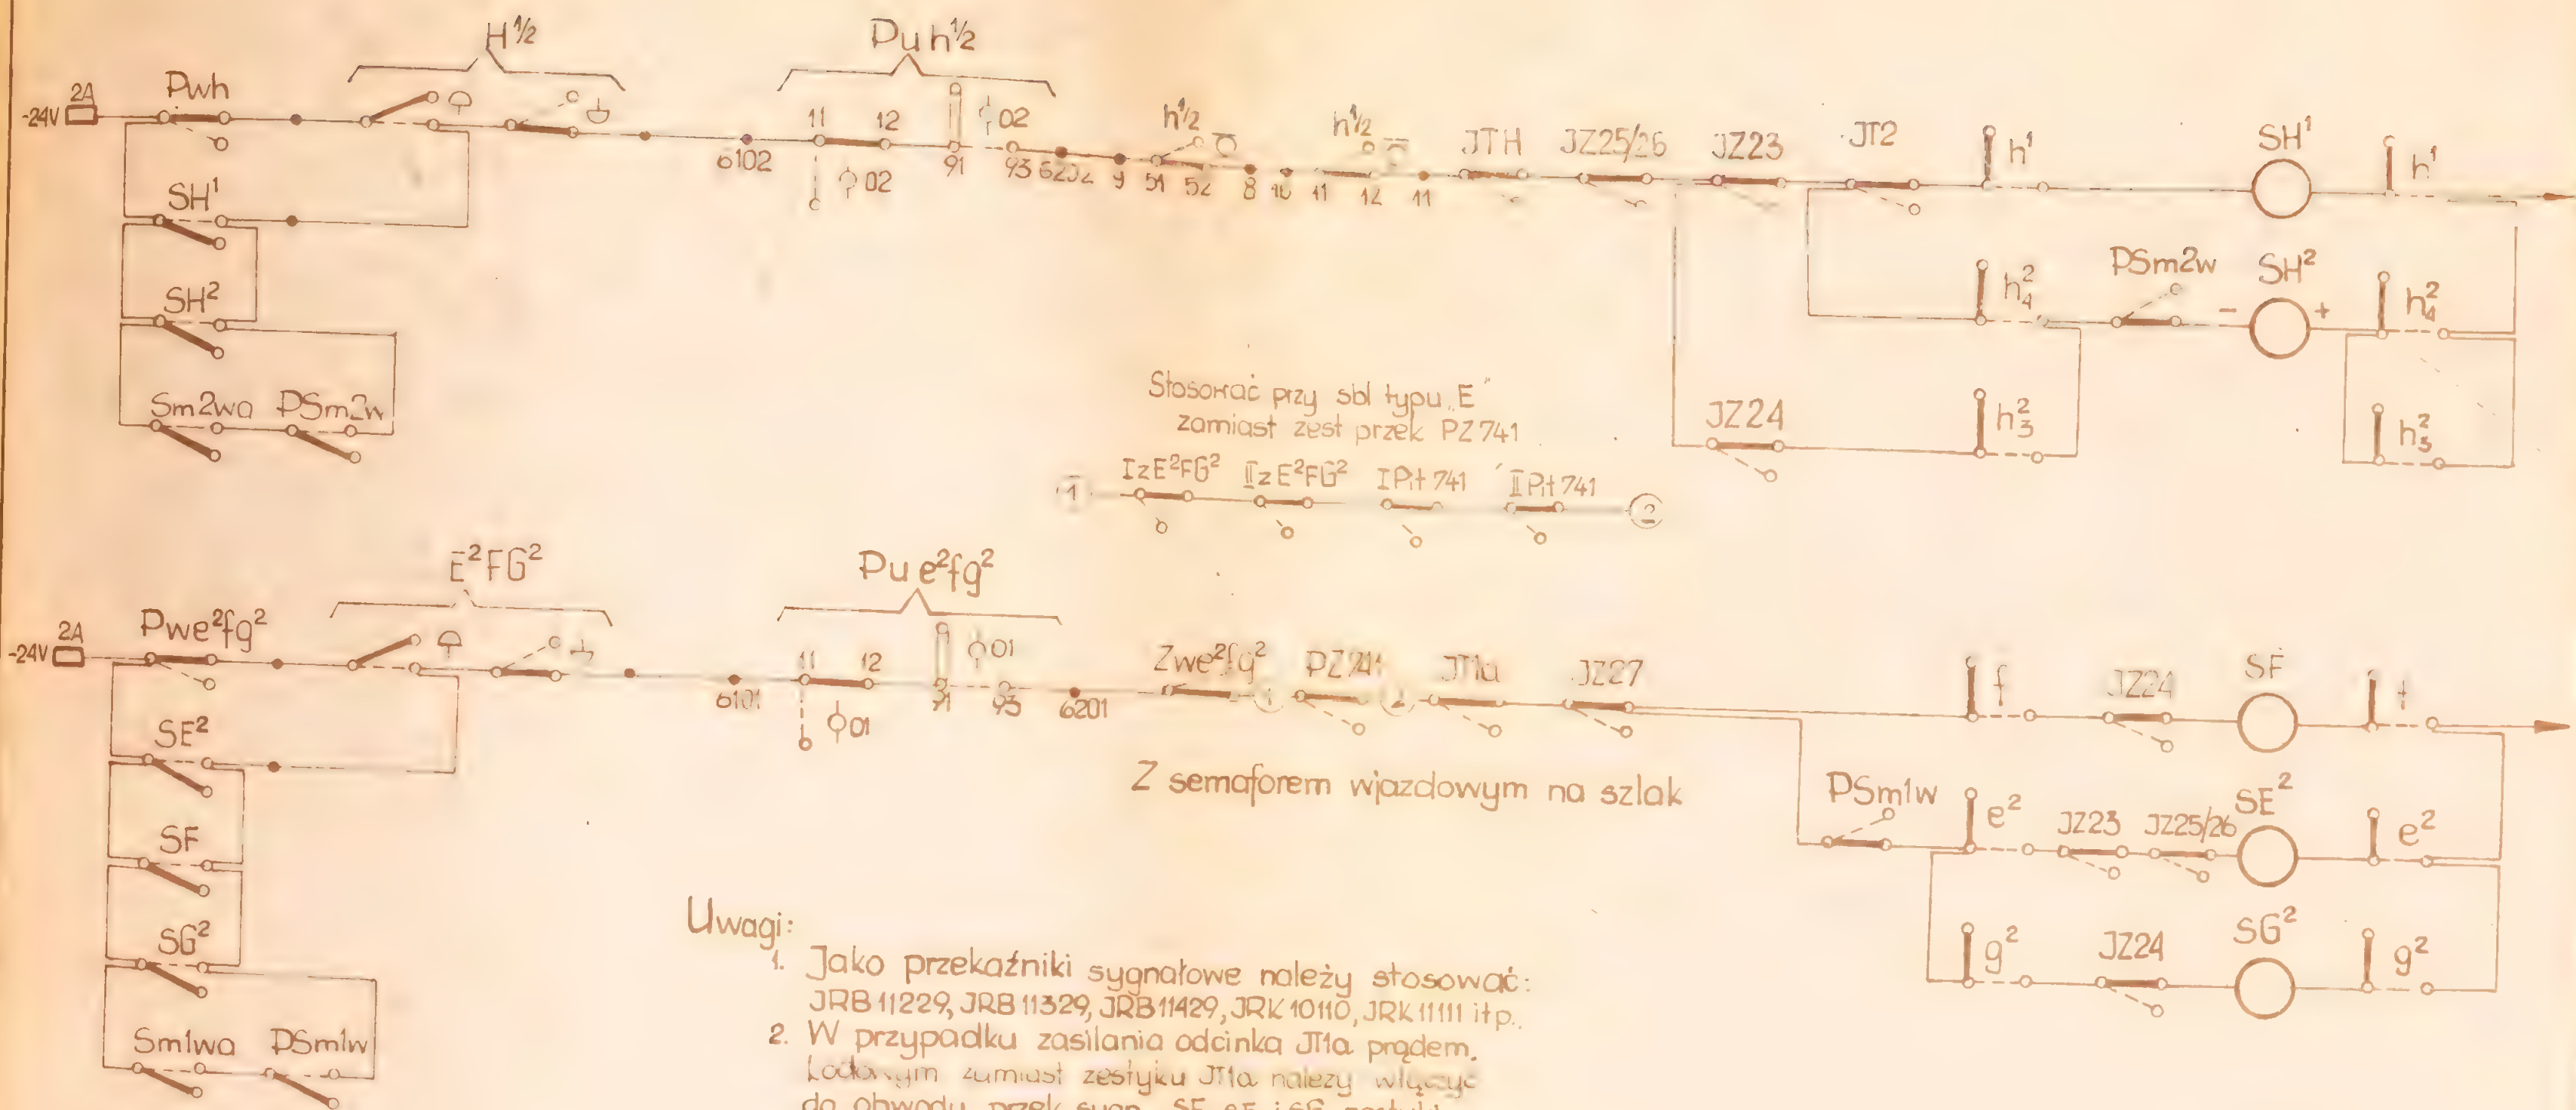 H½
Pu h½
-24V 2A Pwh
11 12 02
6102 02 91 93 6202 9 51 52 8 10 11 12 11
h½ h½ JTH JZ25/26 JZ23 JT2 h¹ SH¹ h¹
SH¹
SH²
h²₄ PSm2w SH² h²₄
- +
Sm2wa PSm2w
Stosować przy sbl typu „E”
zamiast zest przek PZ741
JZ24 h²₃ h²₃
1 IzE²FG² IIzE²FG² IPit741 IIPit741 2
E²FG²
Pu e²fg²
-24V 2A Pwe²fg²
11 12 01
6101 01 91 93 6201
Zwe²fg² 1 PZ741 2 JT1a JZ27 f JZ24 SF f
SE²
Z semaforem wjazdowym na szlak
PSm1w e² JZ23 JZ25/26 SE² e²
SF
SG²
g² JZ24 SG² g²
Sm1wa PSm1w
Uwagi:
1. Jako przekaźniki sygnałowe należy stosować:
JRB 11229, JRB 11329, JRB 11429, JRK 10110, JRK 11111 itp.
2. W przypadku zasilania odcinka JT1a prądem
kodowym zamiast zestyku JT1a należy włączyć
do obwodu przek sygn. SF, i SG zestyki